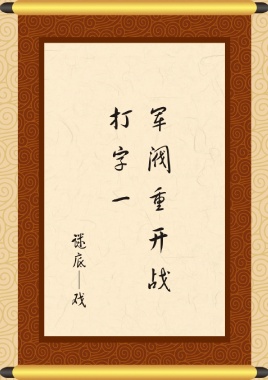 军阀重开战
打字一
谜底——戏